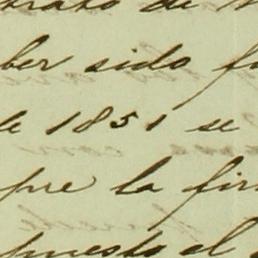 trato de
ber sido fu
de 1851 se
pre la fir
puesto el